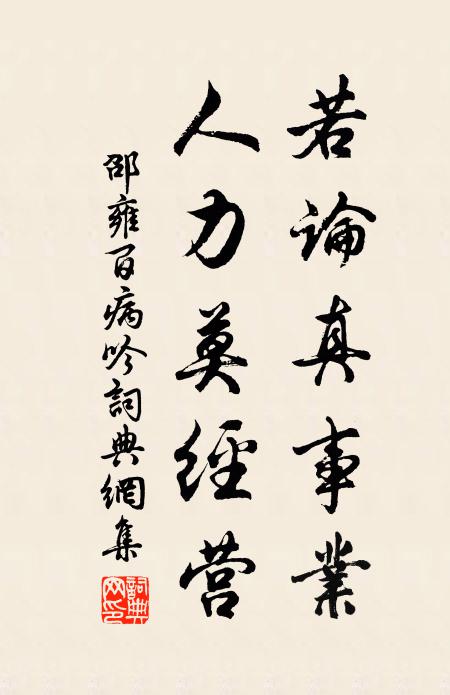 若論真事業
人力莫經营
邵雍百病吟詞典網集
詞典网印